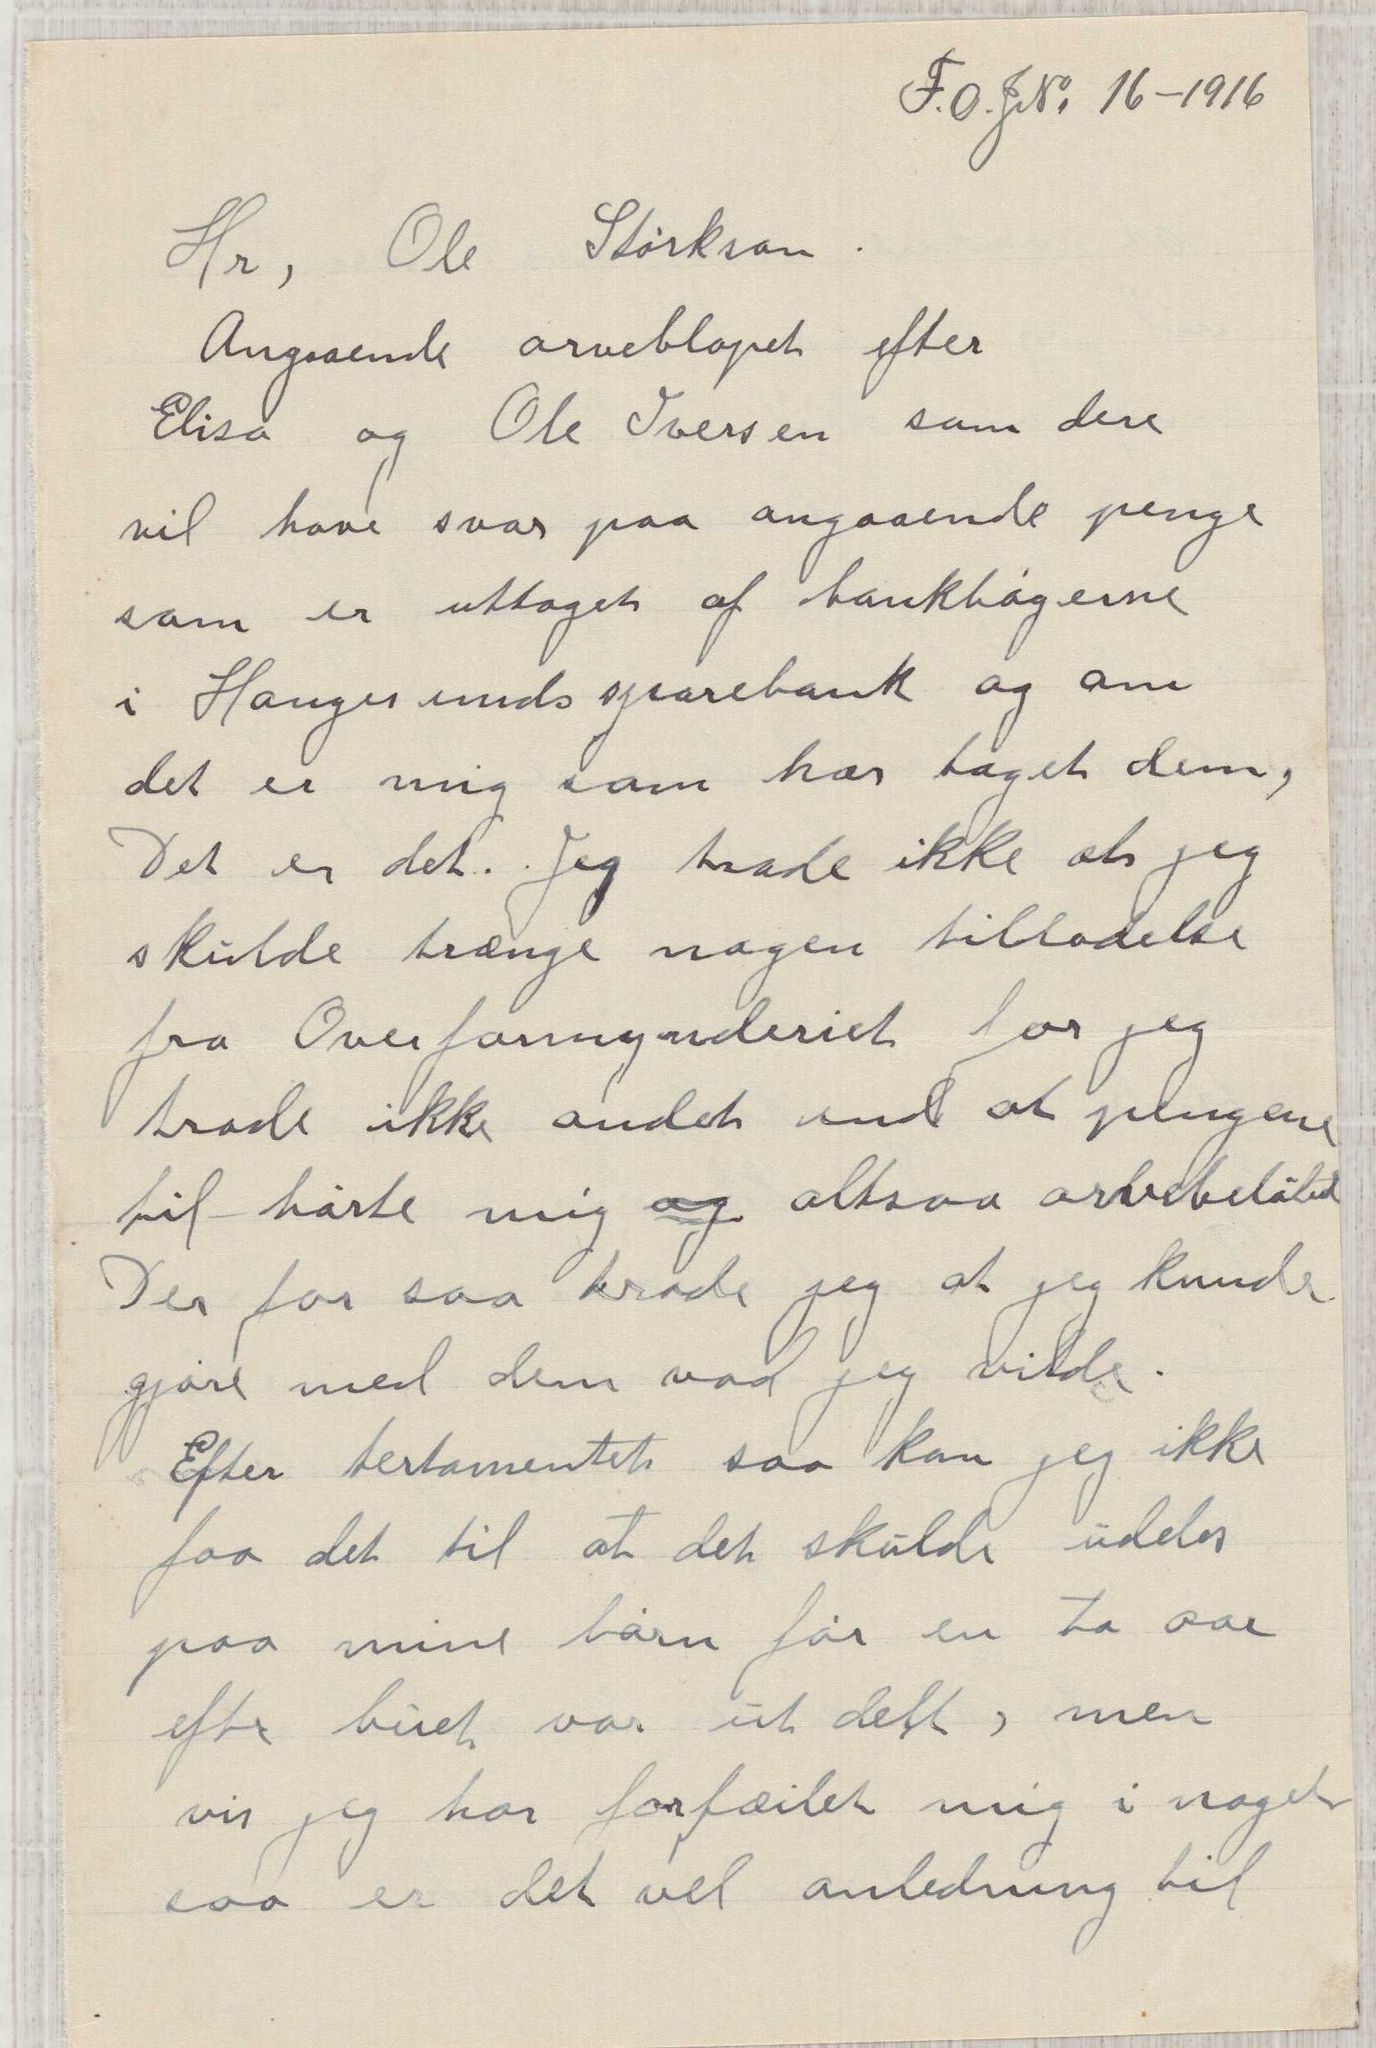 F.O.J.No. 16-1916
Hr, Ole Størkson.
Angaaende arveblopet efter
Elisa og Ole Iversen som dere
vil have svar paa angaaende penge
som er uttaget af bankbøgerne
i Haugesunds sparebank og om
det er mig som har taget dem,
Det er det. Jeg trade ikke at jeg
skulde trænge nogen tilladelse
fra Overformynderiet for jeg
trode ikke andet end at pengene
til-hørte mig og altsaa arvebeløbet
Der for saa trode jeg at jeg kunde
gjøre med dem vad jeg vilde.
Efter testamentet saa kan jeg ikke
faa det til at det skulde udeles
paa mine børn før en to aar
efte buet var ut delt, men
vis jeg har forfæilet mig i noget
saa er det vel anledning til